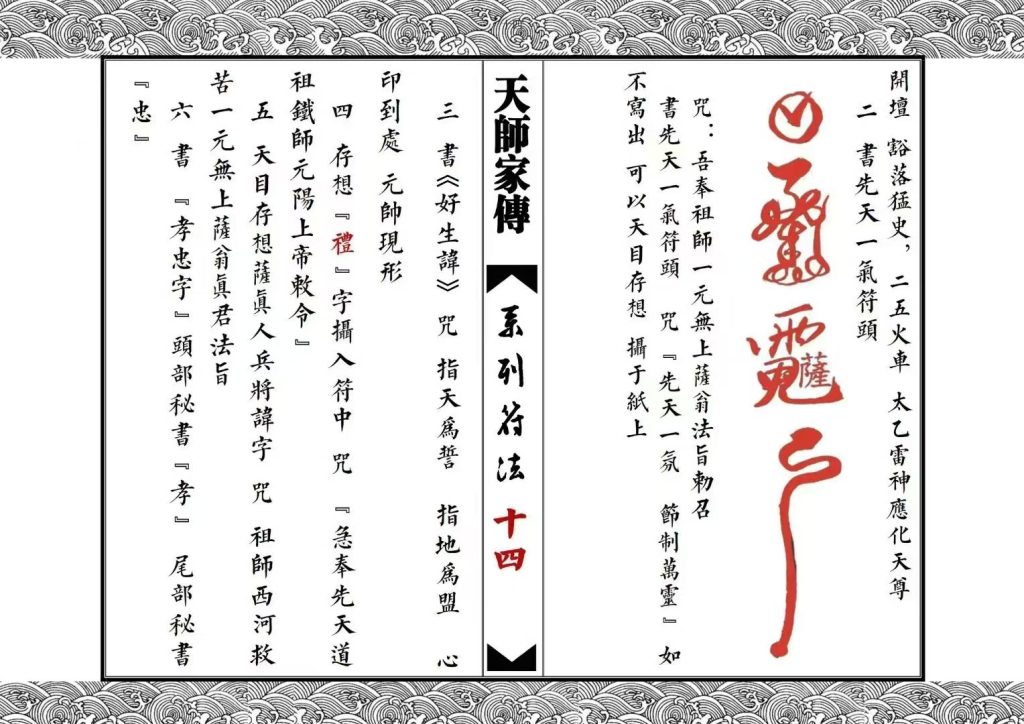 開壇 豁落猛史，二五火車 太乙雷神應化天尊
二 書先天一氣符頭
薩
咒：吾奉祖師一元無上薩翁法旨勅召
書先天一氣符頭 咒『先天一氛 節制萬靈』如
不寫出 可以天目存想 攝于紙上
天師家傳
系列符法 十四
三 書《好生諱》咒 指天爲誓 指地爲盟 心
印到處 元帥現形
四 存想『禮』字攝入符中 咒 『急奉先天道
祖鐵師元陽上帝敕令』
五 天目存想薩眞人兵將諱字 咒 祖師西河救
苦一元無上薩翁眞君法旨
六 書 『孝忠字』頭部秘書『孝』 尾部秘書
『忠』